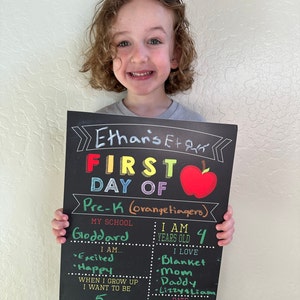 Ethan's
FIRST
DAY OF
Pre-K (orangetiagers)
MY SCHOOL
Goddard
I AM
YEARS OLD 4
I AM...
• Excited
• Happy
I LOVE
• Blanket
• Mom
• Daddy
WHEN I GROW UP
I WANT TO BE